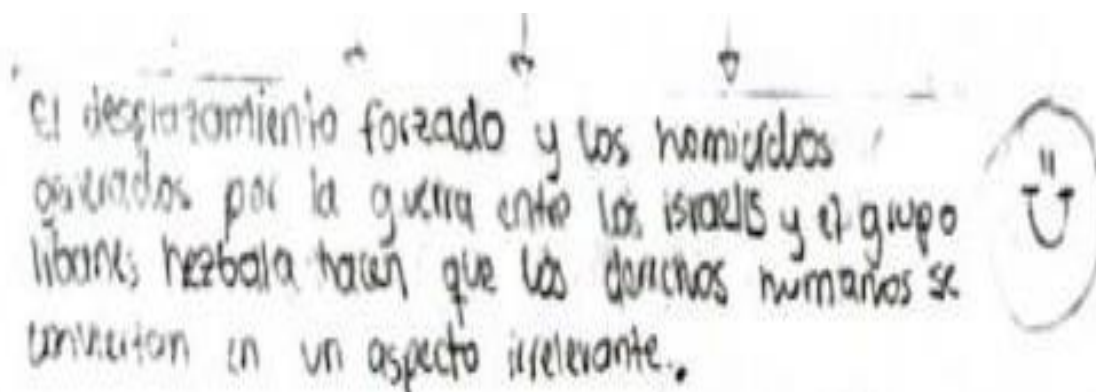 El desplazamiento forzado y los homicidios
generados por la guerra entre los israelis y el grupo
libanes hezbola hacen que los derechos humanos se
conviertan en un aspecto irrelevante.